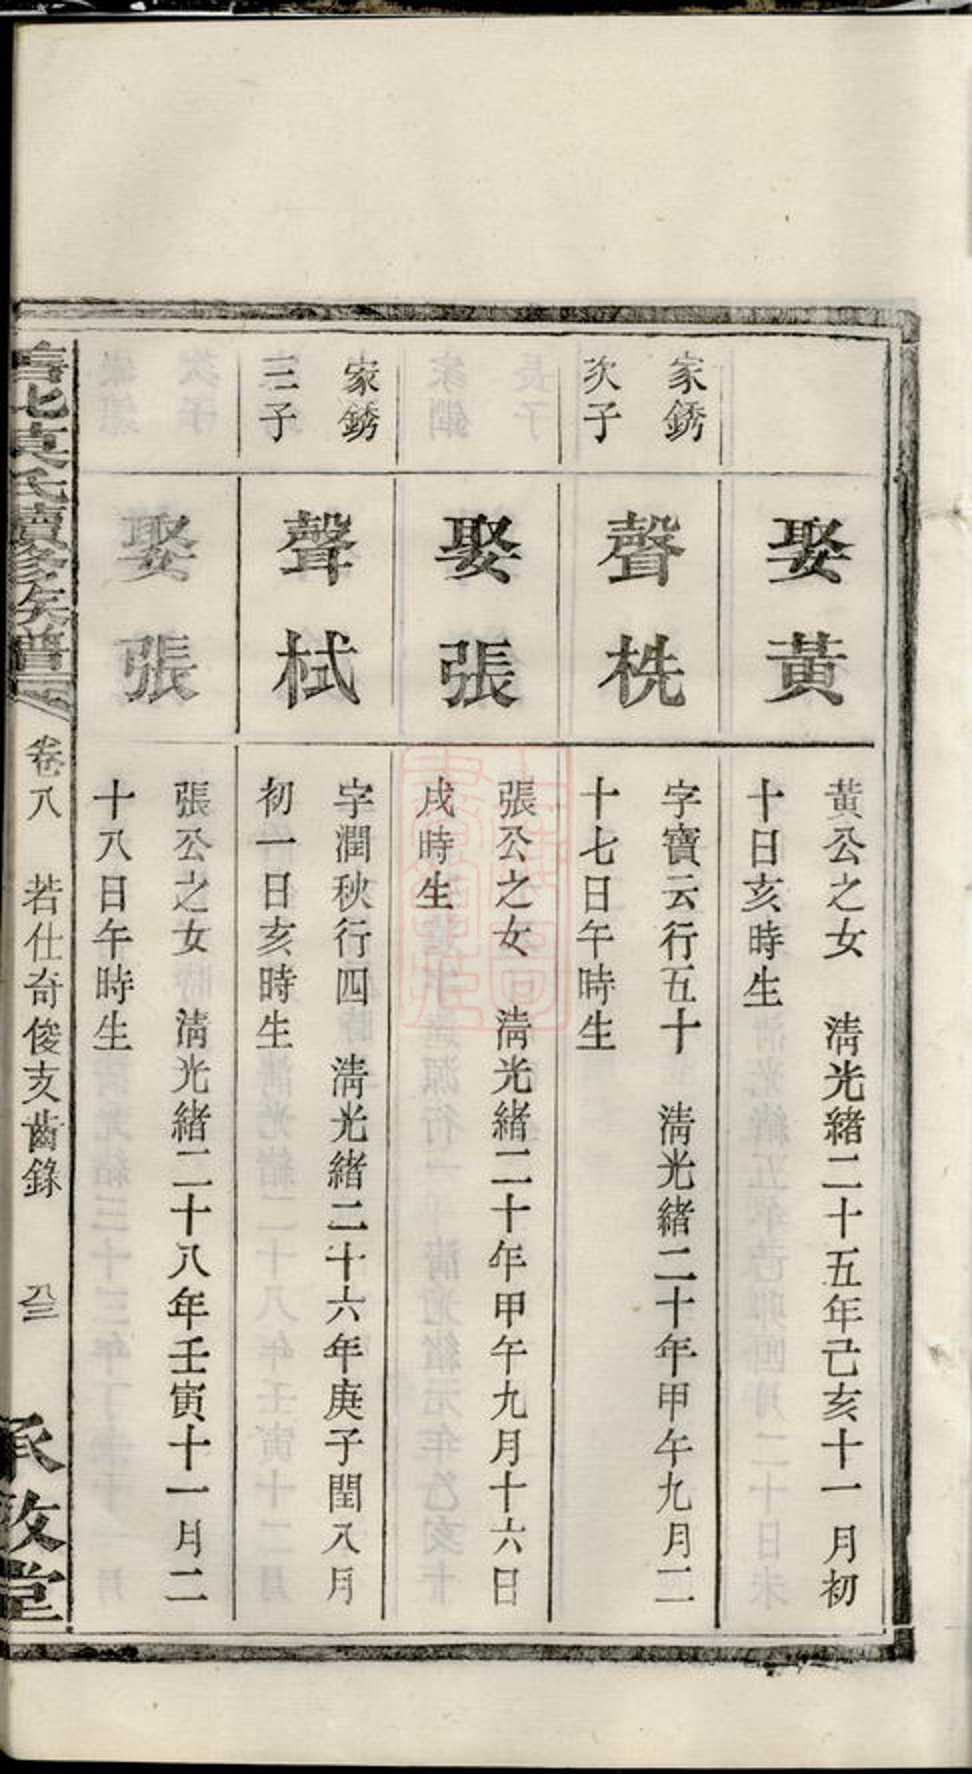 娶黃
黃公之女　淸光緒二十五年己亥十一月初
十日亥時生
家銹
次子
聲㭠
字寶云行五十　淸光緒二十年甲午九月二
十七日午時生
娶張
張公之女　淸光緒二十年甲午九月十六日
戌時生
家銹
三子
聲栻
字潤秋行四　淸光緒二十六年庚子閏八月
初一日亥時生
娶張
張公之女　淸光緒二十八年壬寅十一月二
十八日午時生
氏續修族譜
卷八　若仕奇俊支齒錄　八三
堂